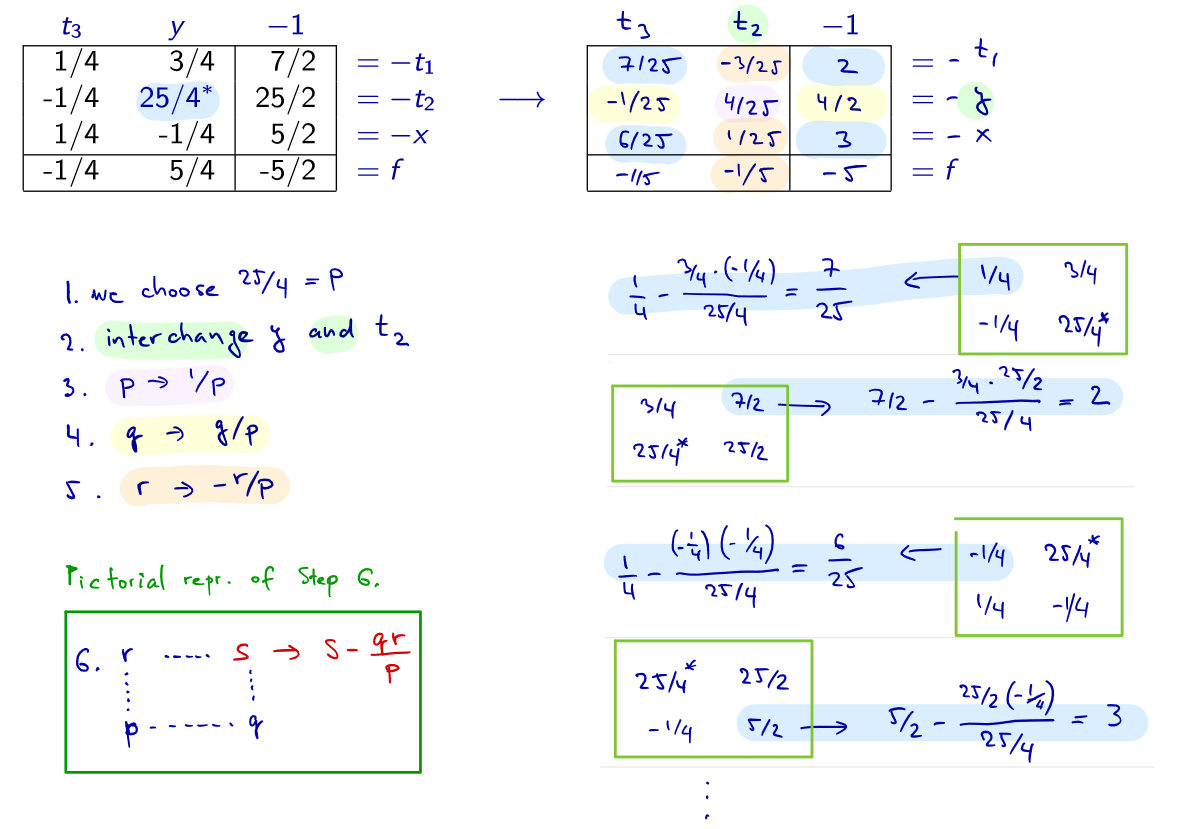 t₃ y −1
1/4 3/4 7/2 = −t₁
-1/4 25/4* 25/2 = −t₂
1/4 -1/4 5/2 = −x
-1/4 5/4 -5/2 = f
⟶
t₃ t₂ −1
7/25 -3/25 2 = - t₁
-1/25 4/25 4/2 = - y
6/25 1/25 3 = - x
-1/5 -1/5 -5 = f
1. we choose 25/4 = P
2. interchange y and t₂
3. P → 1/P
4. q → q/p
5. r → -r/p
Pictorial repr. of Step 6.
6. r ..... s → s - qr/p
p - - - - - - - q
1/4 - (3/4 · (-1/4))/(25/4) = 7/25 ← 1/4 3/4
-1/4 25/4*
3/4 7/2 → 7/2 - (3/4 · 25/2)/(25/4) = 2
25/4* 25/2
1/4 - ((-1/4)(-1/4))/(25/4) = 6/25 ← -1/4 25/4*
1/4 -1/4
25/4* 25/2
-1/4 5/2 → 5/2 - (25/2 (-1/4))/(25/4) = 3
⋮